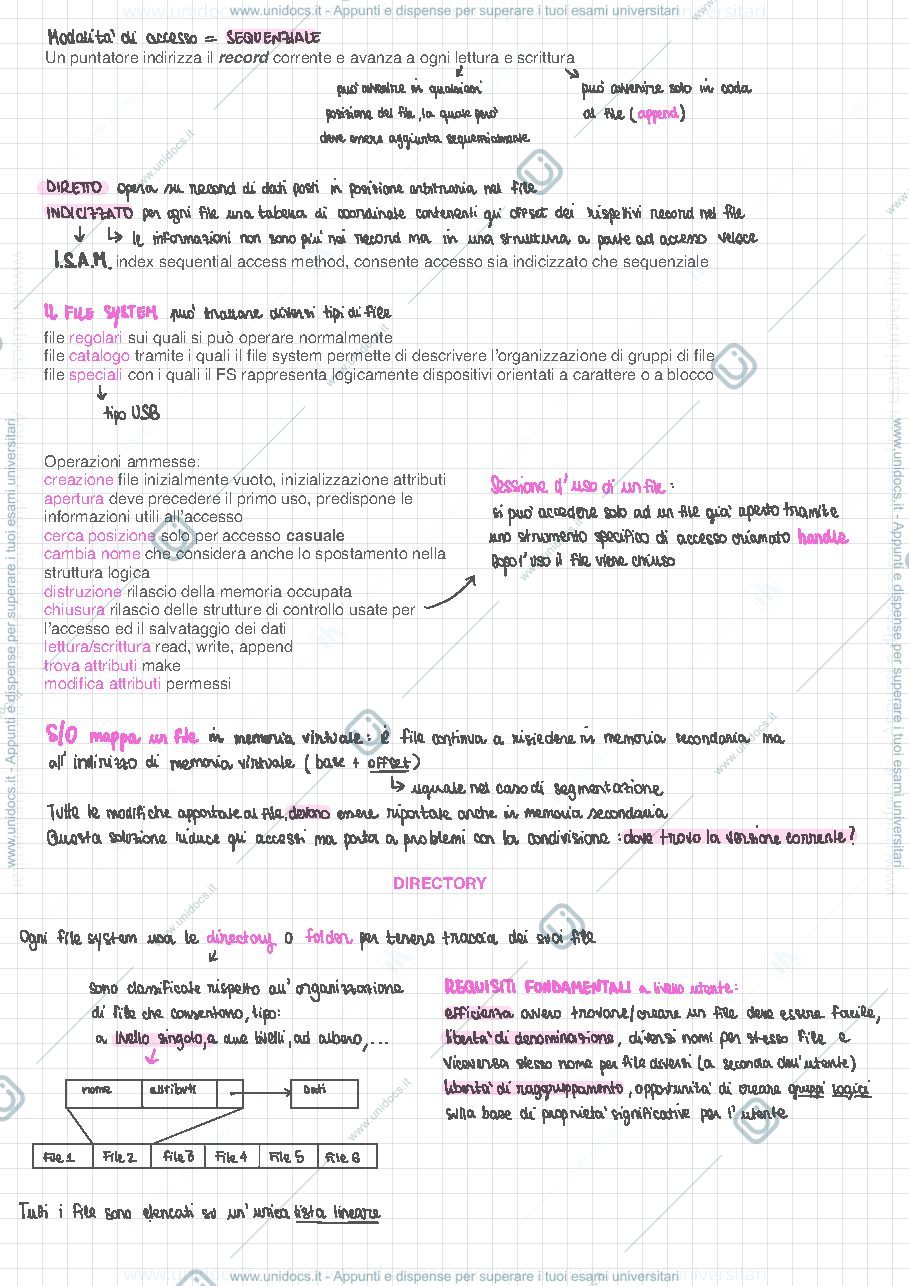 www.unidocs.it - Appunti e dispense per superare i tuoi esami universitari
Modalità di accesso = SEQUENZIALE
Un puntatore indirizza il record corrente e avanza a ogni lettura e scrittura
può avvenire in qualsiasi
posizione del file, la quale però
deve essere aggiunta sequenzialmente
può avvenire solo in coda
al file (append)
DIRETTO opera su record di dati posti in posizione arbitraria nel file
INDICIZZATO per ogni file una tabella di coordinate contenenti gli offset dei rispettivi record nel file
↓ ↳ le informazioni non sono più nei record ma in una struttura a parte ad accesso veloce
I.S.A.M. index sequential access method, consente accesso sia indicizzato che sequenziale
IL FILE SYSTEM può trattare diversi tipi di file
file regolari sui quali si può operare normalmente
file catalogo tramite i quali il file system permette di descrivere l'organizzazione di gruppi di file
file speciali con i quali il FS rappresenta logicamente dispositivi orientati a carattere o a blocco
tipo USB
Operazioni ammesse:
creazione file inizialmente vuoto, inizializzazione attributi
apertura deve precedere il primo uso, predispone le
informazioni utili all'accesso
cerca posizione solo per accesso casuale
cambia nome che considera anche lo spostamento nella
struttura logica
distruzione rilascio della memoria occupata
chiusura rilascio delle strutture di controllo usate per
l'accesso ed il salvataggio dei dati
lettura/scrittura read, write, append
trova attributi make
modifica attributi permessi
Sessione d'uso di un file:
si può accedere solo ad un file già aperto tramite
uno strumento specifico di accesso chiamato handle
Dopo l'uso il file viene chiuso
S/O mappa un file in memoria virtuale: il file continua a risiedere in memoria secondaria ma
all'indirizzo di memoria virtuale (base + offset)
↳ uguale nel caso di segmentazione
Tutte le modifiche apportate al file, devono essere riportate anche in memoria secondaria
Questa soluzione riduce gli accessi ma porta a problemi con la condivisione: dove trovo la versione corrente?
DIRECTORY
Ogni file system usa le directory o folder per tenere traccia dei suoi file
sono classificate rispetto all'organizzazione
di file che consentono, tipo:
a livello singolo, a due livelli, ad albero, ...
nome attributi Dati
File 1 File 2 File 3 File 4 File 5 File 6
Tutti i file sono elencati su un'unica lista lineare
REQUISITI FONDAMENTALI a livello utente:
efficienza ovvero trovare/creare un file deve essere facile,
libertà di denominazione, diversi nomi per stesso file e
viceversa stesso nome per file diversi (a seconda dell'utente)
libertà di raggruppamento, opportunità di creare gruppi logici
sulla base di proprietà significative per l'utente
www.unidocs.it - Appunti e dispense per superare i tuoi esami universitari